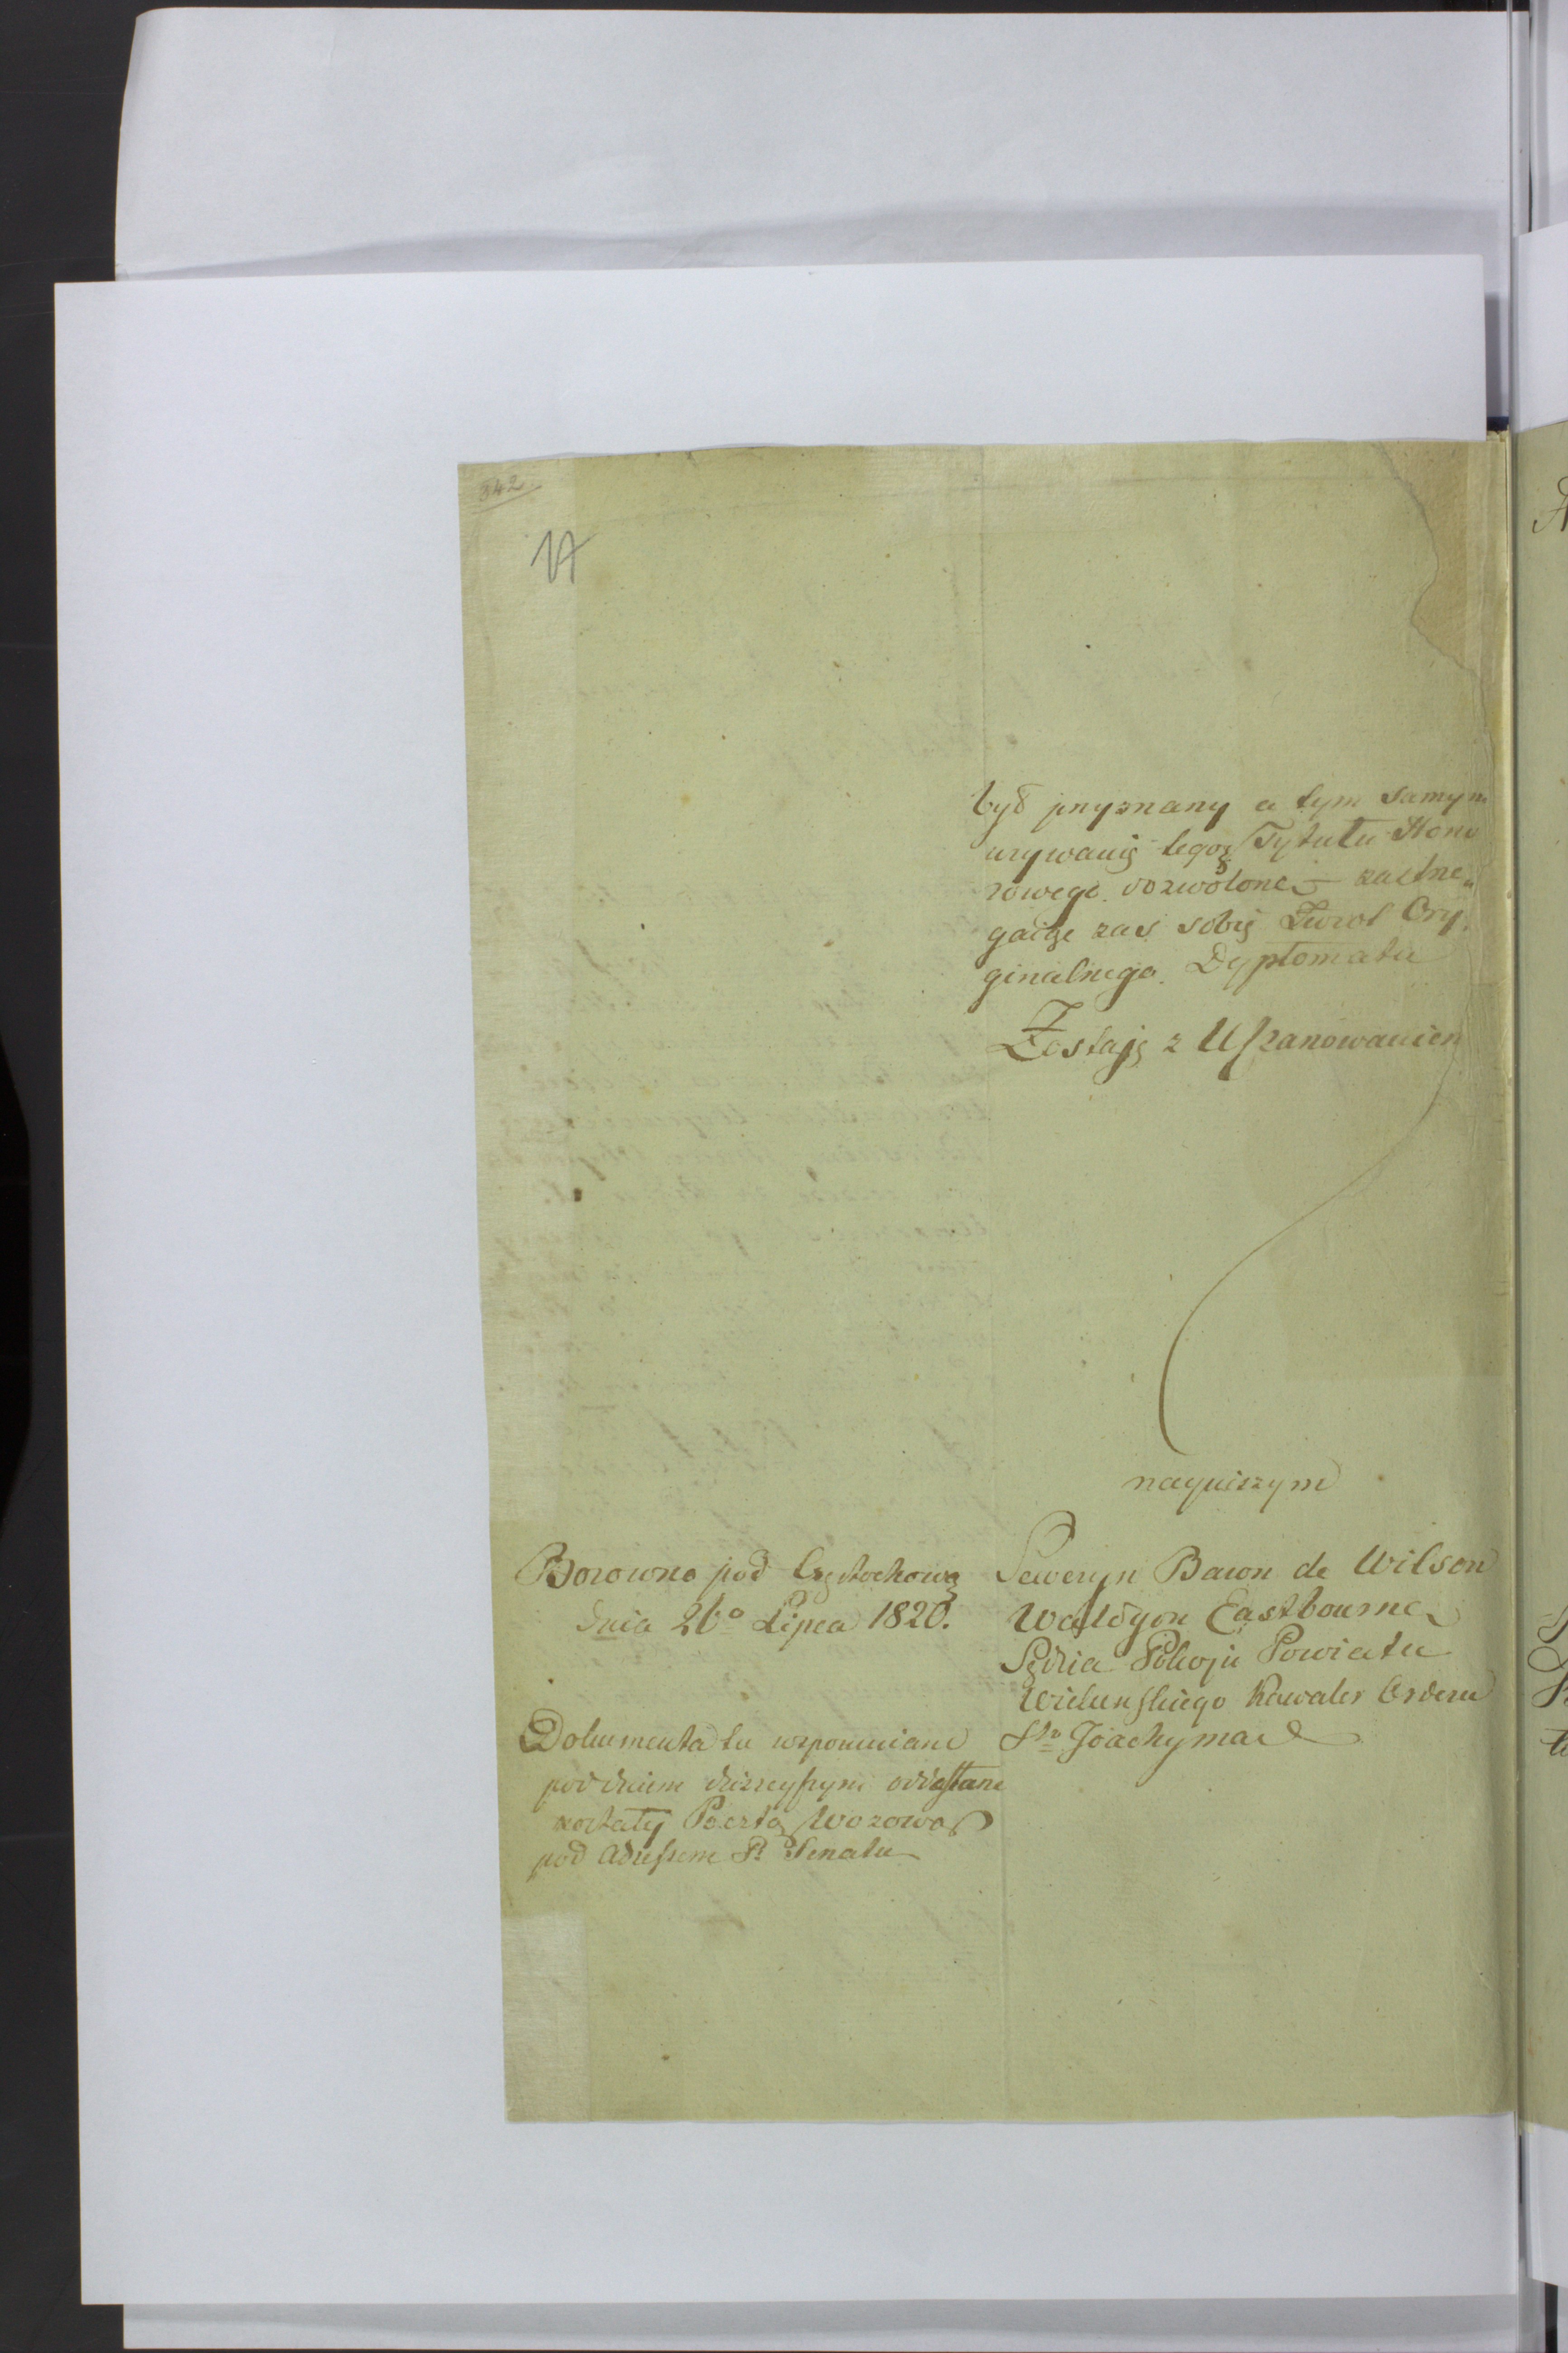 342
17
był przyznany a tym samym
używanię tegoż Tytułu Hono
rowego dozwolone — zastrze„
gaiąc zas sobię Zwrot Ory„
ginalnego Dyplomatu
Zostaję z Uszanowaniem
naywiższym
Borowno pod Częstochową
dnia 26º Lipca 1820.
Seweryn Baron de Wilson
Waldyon Eastbourne
Sędzia Pokoju Powiatu
Wielunskiego Kawaler Orderu
Sgo Joachyma
Dokumenta tu wspomniane
pod dniem dzisieyszym odesłane
zostały Pocztą Wozową
pod Adressem Pr Senatu